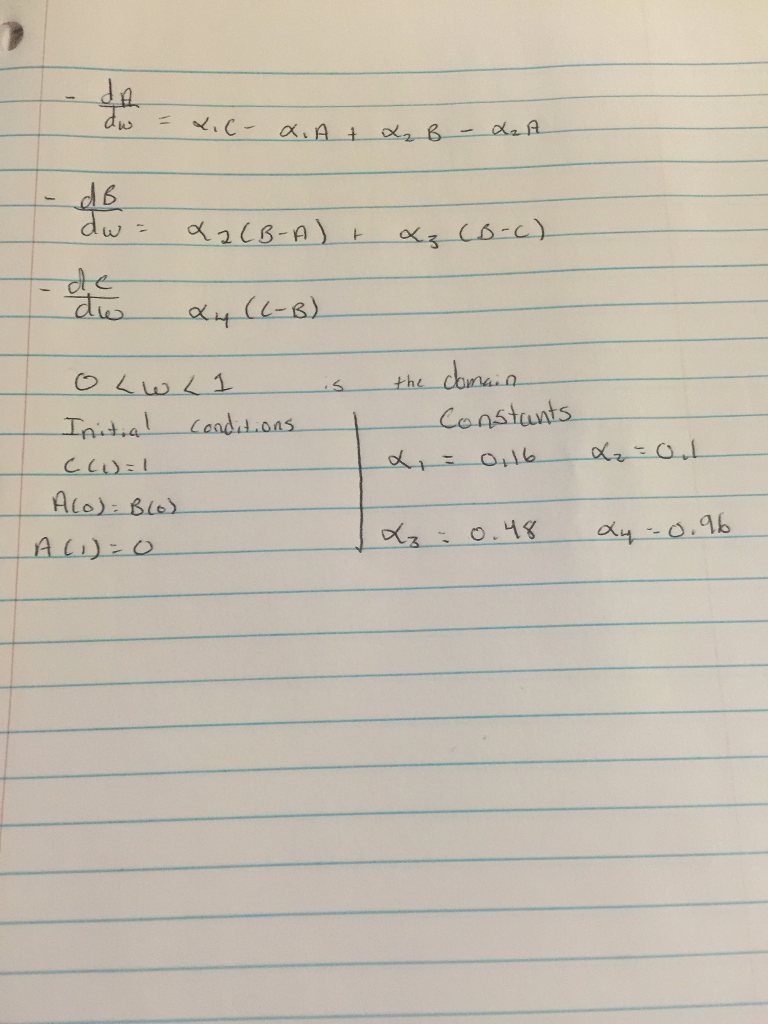 - dA/dw = α₁C - α₁A + α₂B - α₂A
- dB/dw = α₂(B-A) + α₃(B-C)
- dC/dw α₄(C-B)
0 < w < 1 is the domain
Initial conditions
C(1)=1
A(0)=B(0)
A(1)=0
Constants
α₁ = 0.16 α₂ = 0.1
α₃ = 0.48 α₄ = 0.96